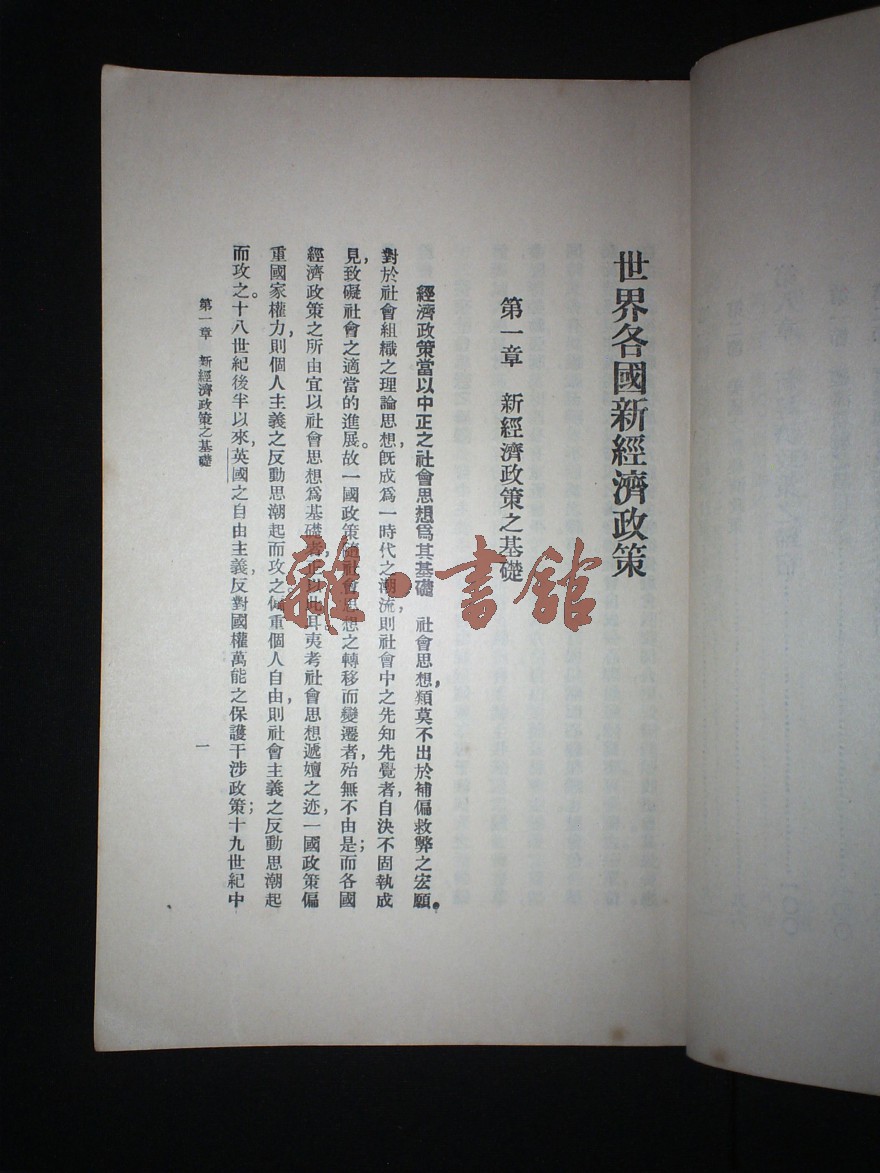 世界各國新經濟政策
第一章　新經濟政策之基礎
經濟政策當以中正之社會思想爲其基礎　社會思想，類莫不出於補偏救弊之宏願。
對於社會組織之理論思想，既成爲一時代之潮流，則社會中之先知先覺者，自決不固執成
見，致礙社會之適當的進展。故一國政策隨社會思想之轉移而變遷者，殆無不由是；而各國
經濟政策之所由宜以社會思想爲基礎者，正以此耳。夷考社會思想遞嬗之迹，一國政策偏
重國家權力，則個人主義之反動思潮起而攻之。偏重個人自由，則社會主義之反動思潮起
而攻之。十八世紀後半以來，英國之自由主義，反對國權萬能之保護干涉政策；十九世紀中
第一章　新經濟政策之基礎
一
雜·書館